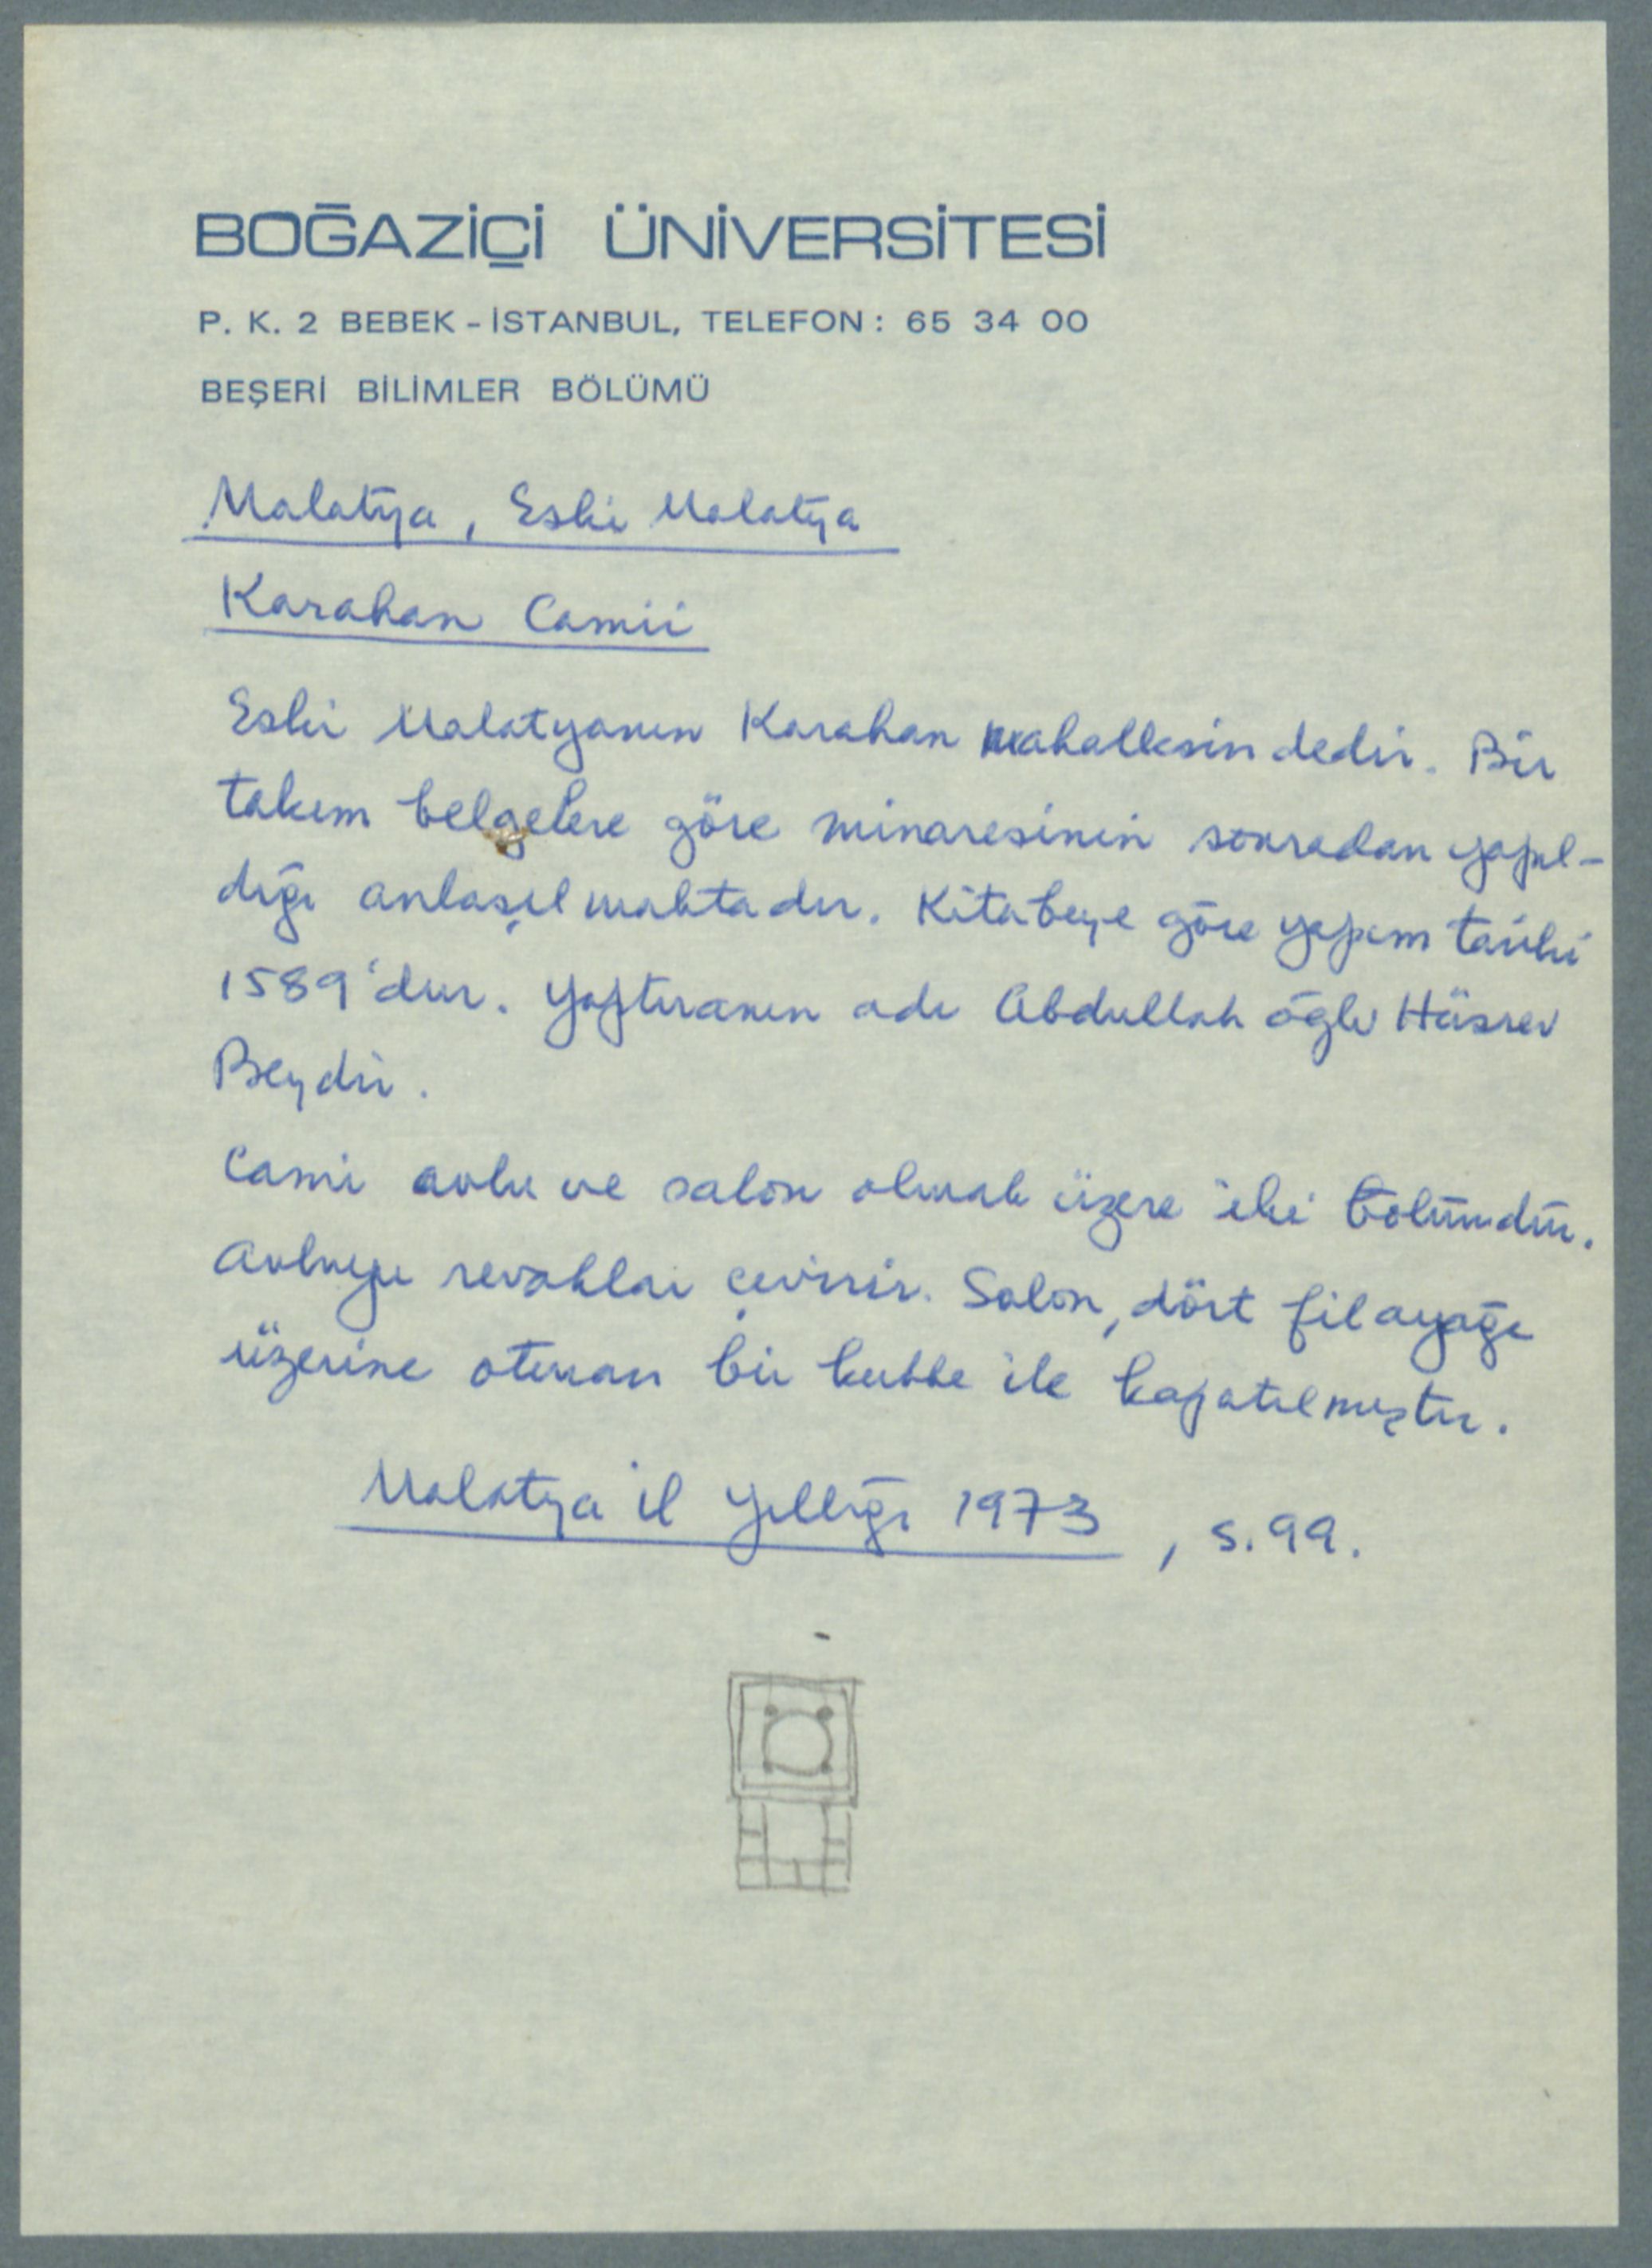 BOĞAZİÇİ ÜNİVERSİTESİ
P. K. 2 BEBEK - İSTANBUL, TELEFON : 65 34 00
BEŞERİ BİLİMLER BÖLÜMÜ
Malatya, Eski Malatya
Karahan Camii
Eski Malatyanın Karahan mahallesindedir. Bir
takım belgelere göre minaresinin sonradan yapıl-
dığı anlaşılmaktadır. Kitabeye göre yapım tarihi
1589'dur. Yaptıranın adı Abdullah oğlu Hüsrev
Beydir.
Cami avlu ve salon olmak üzere iki bölümdür.
Avluyu revaklar çevirir. Salon, dört filayağı
üzerine oturan bir kubbe ile kapatılmıştır.
Malatya İl Yıllığı 1973, s.99.